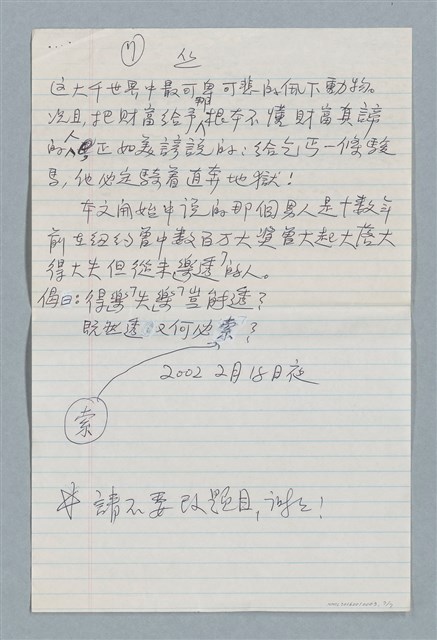 (7)
这大千世界中最可卑可悲的低下動物。
况且,把財富給予根本不懂財富真諦
的人正如美諺說的:給乞丐一條駿
馬,他必定騎着直奔地獄!
本文開始中说的那個男人是十數年
前在纽约曾中數百万大獎曾大起大落大
得大失但從未樂透的人。
偈曰:得樂失樂豈能透?
既彻透 又何必索?
2002 2月18日夜
索
請不要改題目,謝謝!